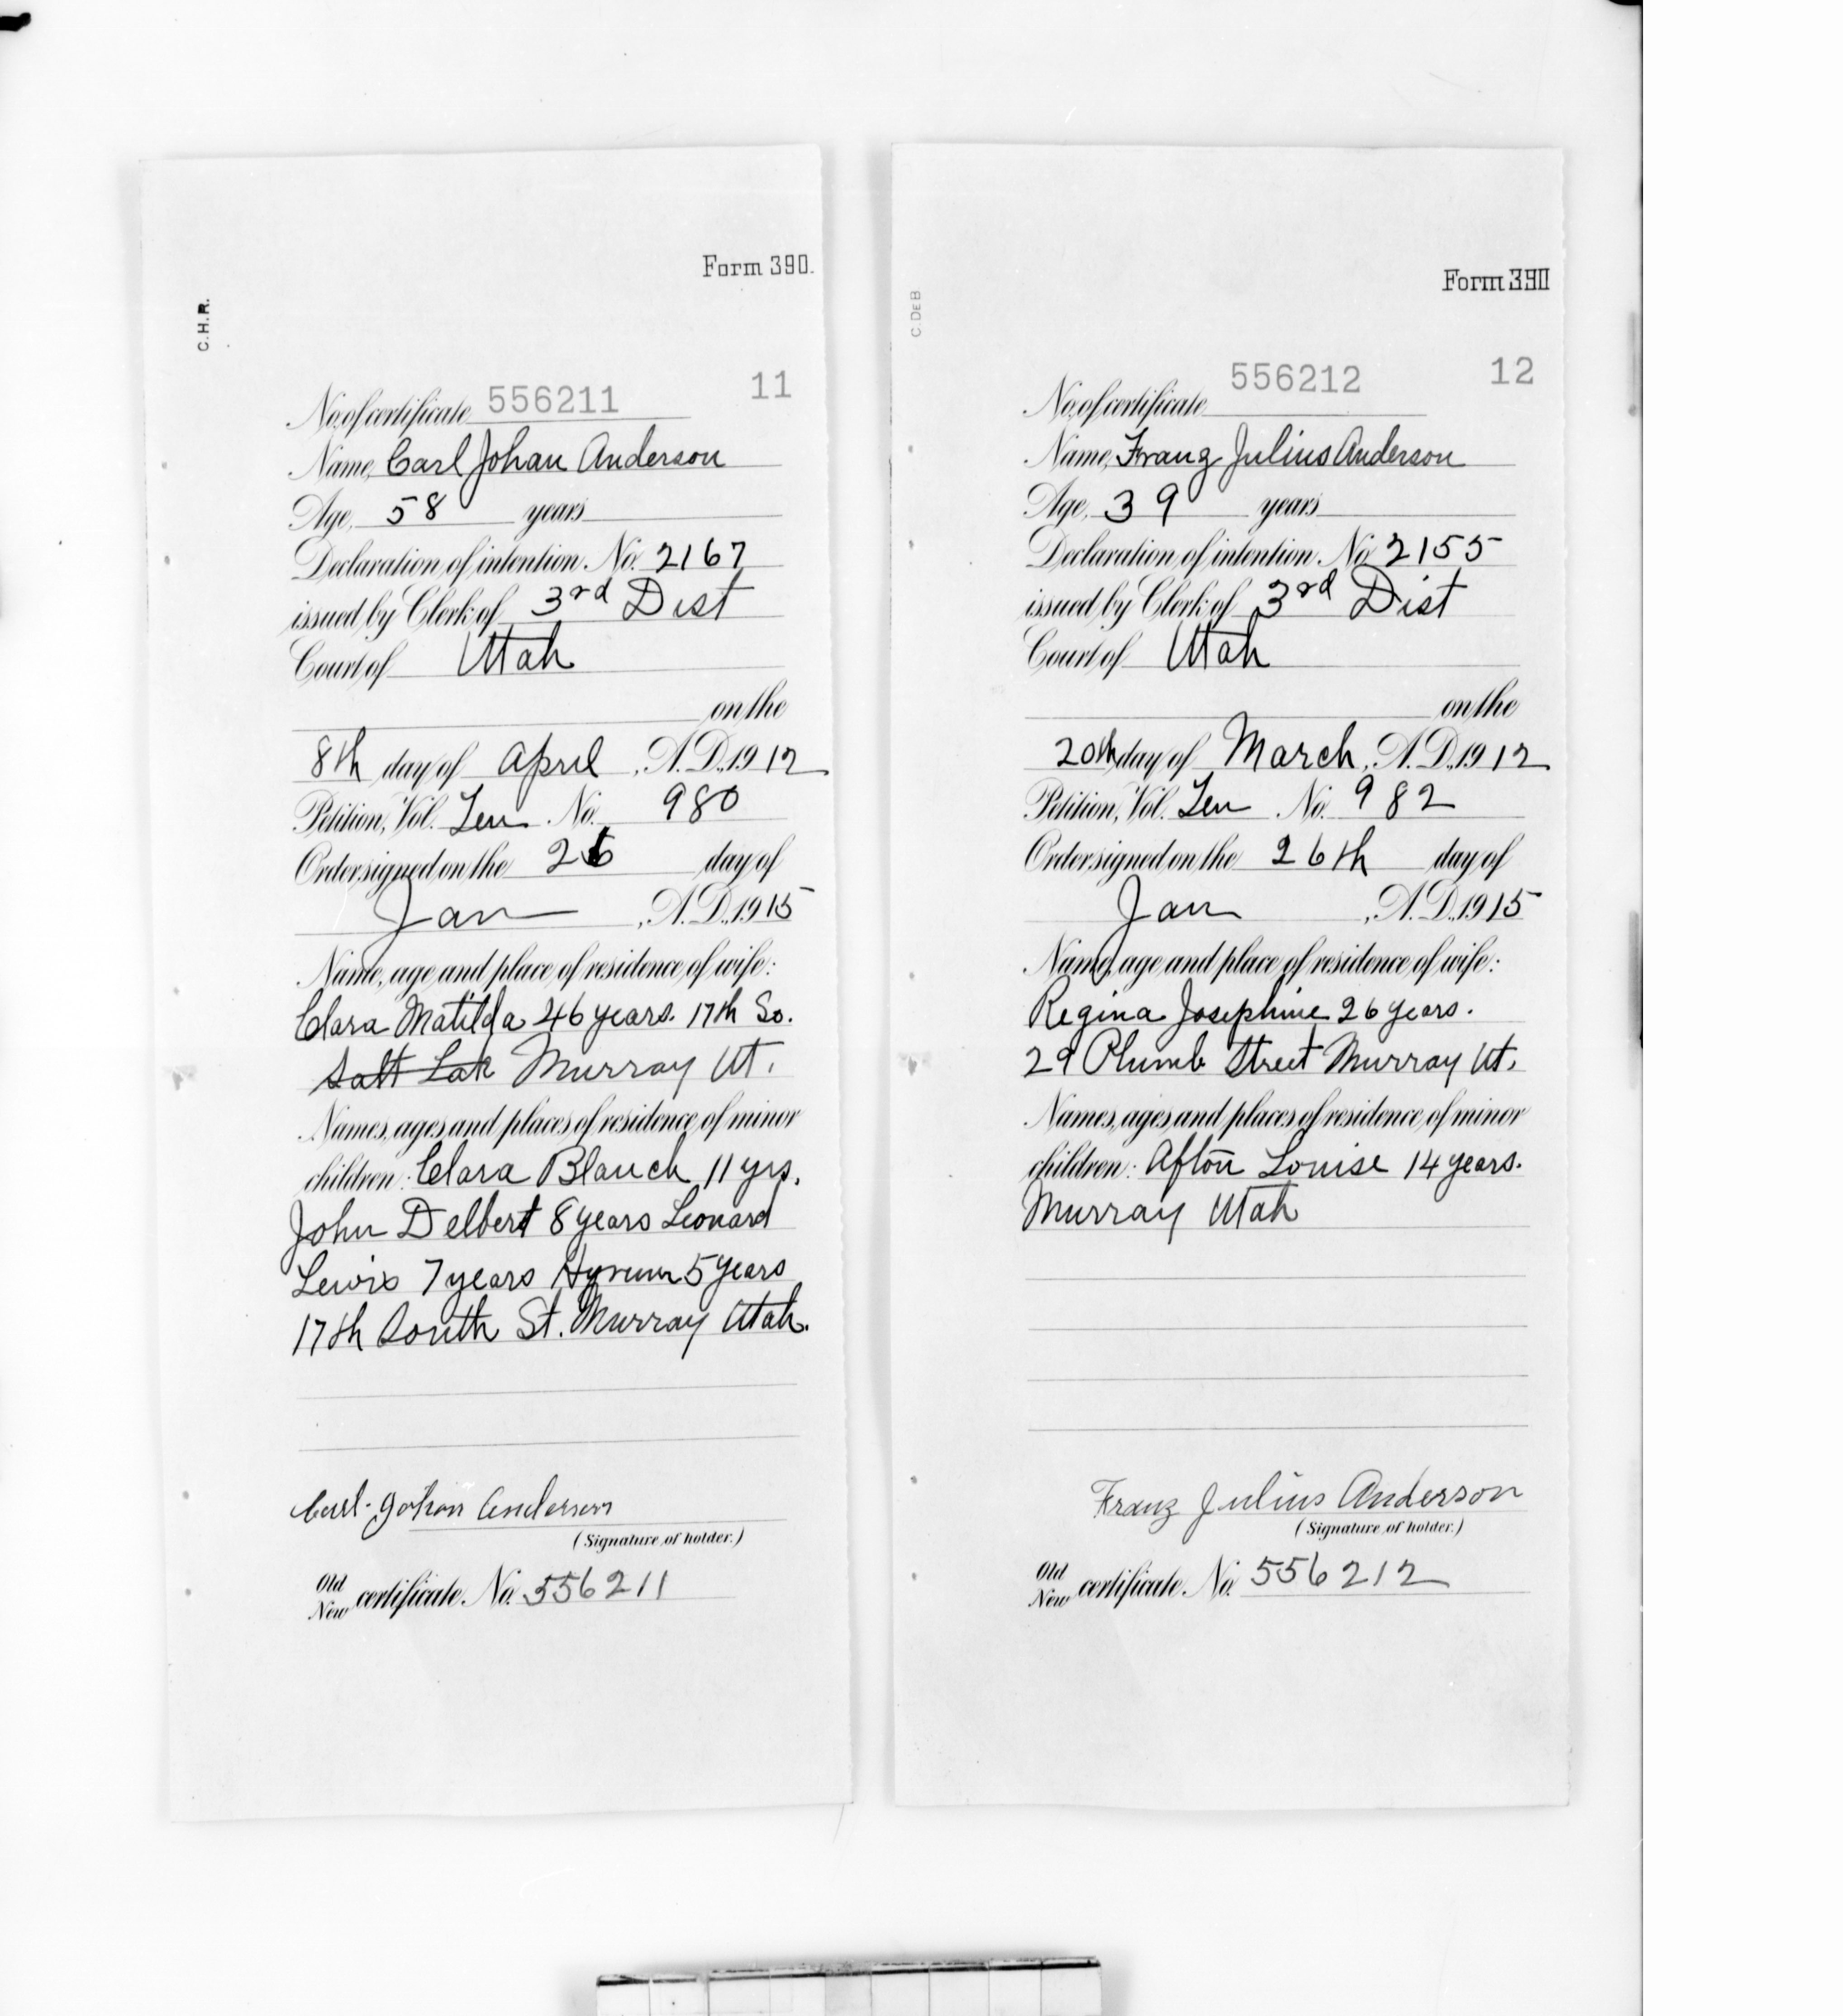 Form 390.
C.H.R.
11
No. of certificate 556211
Name, Carl Johan Anderson
Age, 58 years
Declaration of intention. No. 2167
issued by Clerk of 3rd Dist
Court of Utah
on the
8th day of April, A.D. 1912
Petition, Vol. Ten No. 980
Order signed on the 26 day of
Jan, A.D. 1915
Name, age and place of residence of wife:
Clara Matilda 46 years. 17th So.
Salt Lak Murray Ut.
Names, ages and places of residence of minor
children: Clara Blanch 11 yrs.
John Delbert 8 years Leonard
Lewis 7 years 5 years
17th South St. Murray Utah.
Carl Johan Anderson
(Signature of holder.)
Old
New certificate. No. 556211
Form 390
C.DEB
12
No. of certificate 556212
Name, Franz Julius Anderson
Age, 39 years
Declaration of intention. No. 2155
issued by Clerk of 3rd Dist
Court of Utah
on the
20th day of March, A.D. 1912
Petition, Vol. Ten No. 982
Order signed on the 26th day of
Jan, A.D. 1915
Name, age and place of residence of wife:
Regina Josephine 26 years.
29 Plumb Street Murray Ut.
Names, ages and places of residence of minor
children: Afton Louise 14 years.
Murray Utah
Franz Julius Anderson
(Signature of holder.)
Old
New certificate. No. 556212